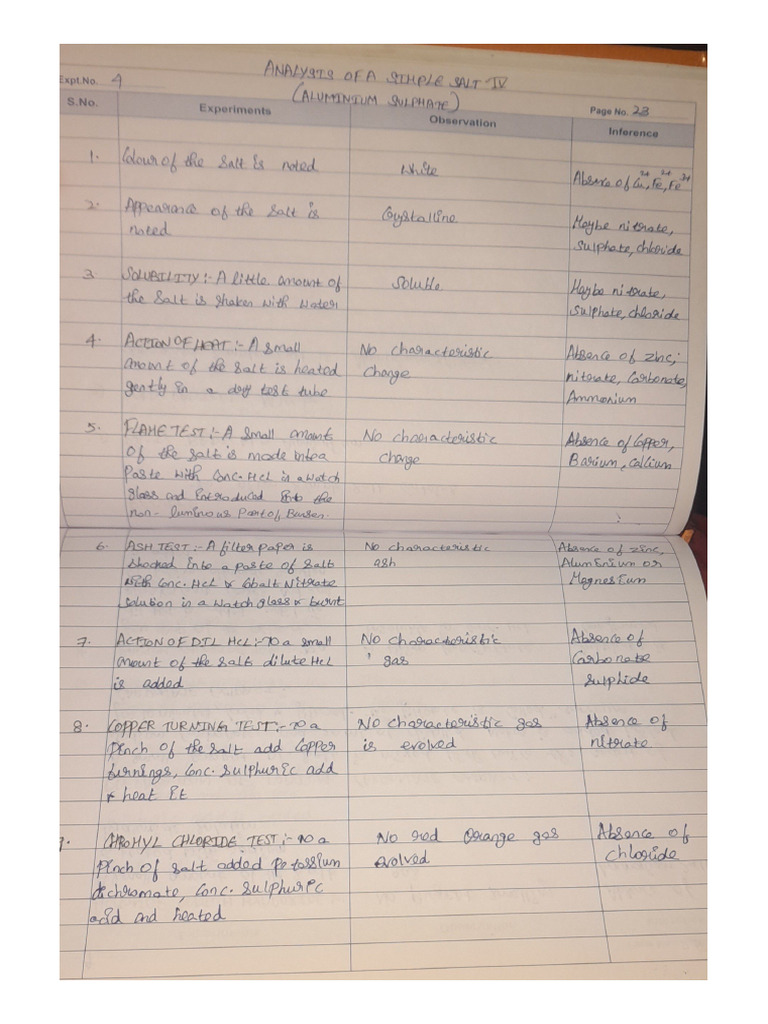 ANALYSIS OF A SIMPLE SALT IV
Expt.No. 4
(ALUMINIUM SULPHATE)
Page No. 23
S.No. Experiments Observation Inference
1. Colour of the Salt is noted
White
Absence of Cu2+, Fe2+, Fe3+
2. Appearance of the Salt is
noted
Crystalline
Maybe nitrate,
Sulphate, chloride
3 SOLUBILITY:- A little amount of
the Salt is shaken with water
Soluble
Maybe nitrate,
Sulphate, chloride
4. ACTION OF HEAT:- A Small
amount of the Salt is heated
gently in a dry test tube
No characteristic
change
Absence of zinc,
nitrate, Carbonate,
Ammonium
5. FLAME TEST:- A small amount
of the salt is made into a
Paste with Conc. HCl in a watch
glass and Introduced Into the
non-luminous Part of Bunsen.
No characteristic
change
Absence of Copper,
Barium, Calcium
6. ASH TEST:- A filter paper is
into a paste of Salt
with Conc. HCl & Cobalt Nitrate
Solution in a watch glass & burnt
No characteristic
ash
Absence of zinc,
Aluminium or
Magnesium
7. ACTION OF DIL HCL:- To a small
amount of the salt dilute HCl
is added
No characteristic
gas
Absence of
Carbonate
Sulphide
8. COPPER TURNING TEST:- To a
Pinch of the Salt add Copper
turnings, Conc. Sulphuric add
& heat It
No characteristic gas
is evolved
Absence of
nitrate
9. CHROMYL CHLORIDE TEST:- To a
Pinch of salt added Potassium
dichromate, Conc. Sulphuric
acid and heated
No red Orange gas
evolved
Absence of
chloride